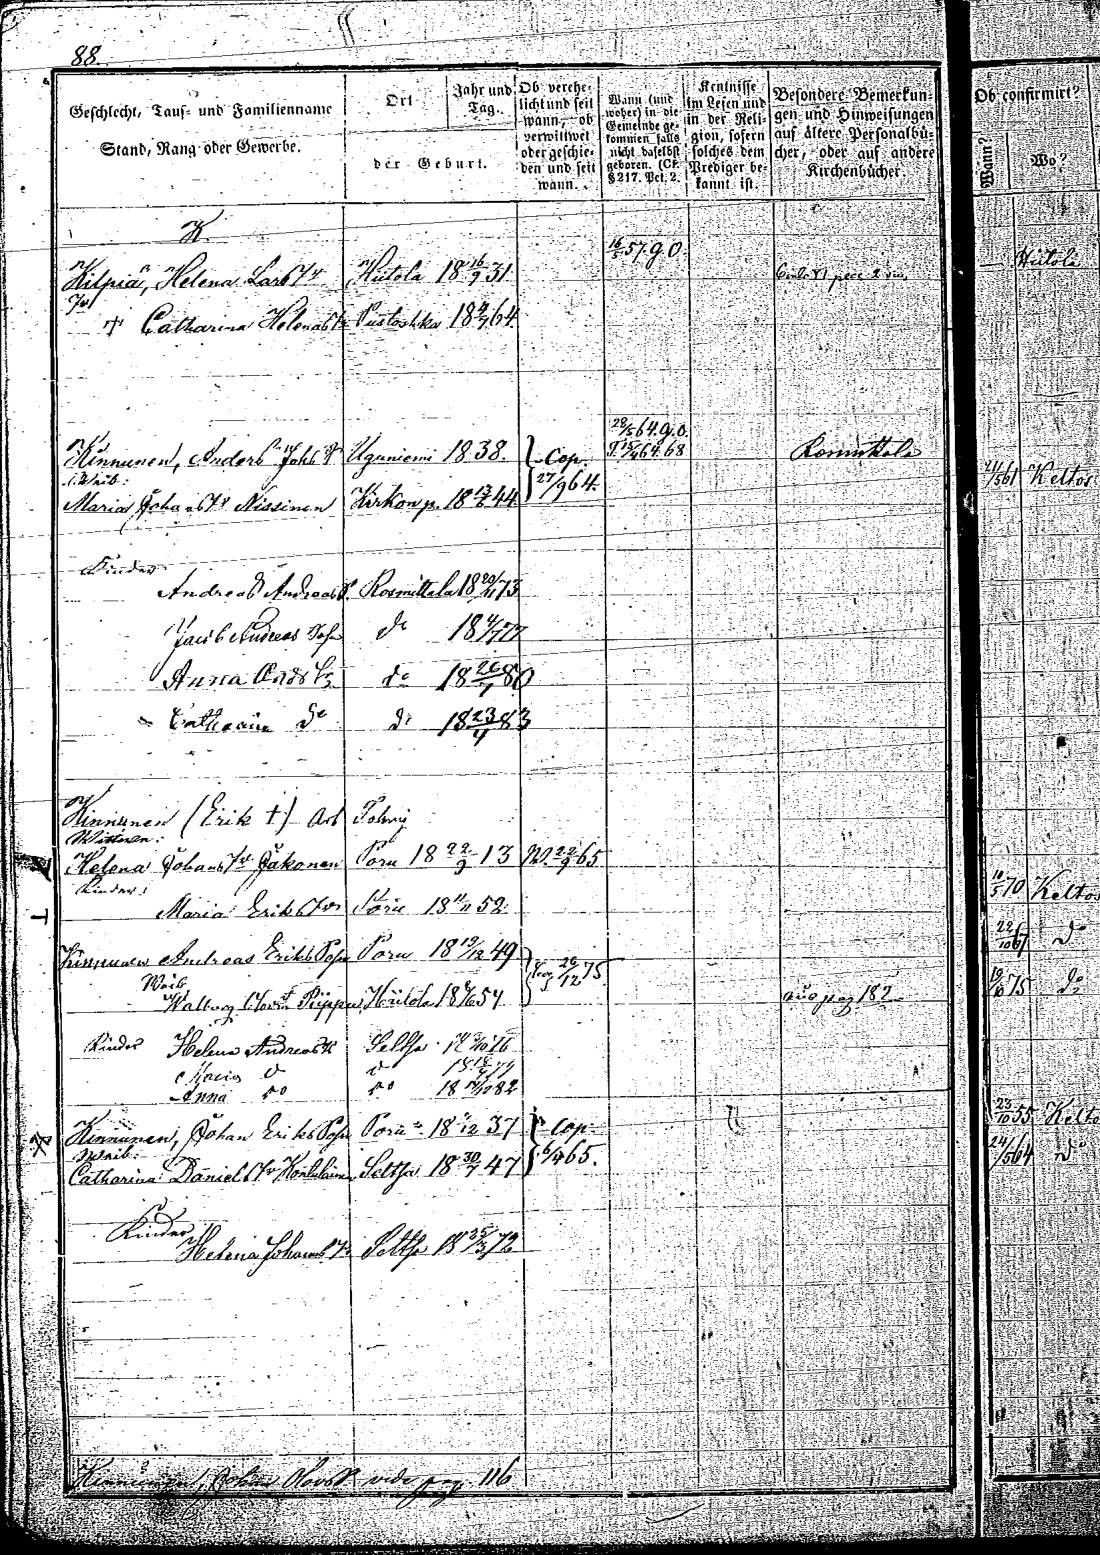 88.
Geschlecht, Tauf- und Familienname
Stand, Rang oder Gewerbe.
Ort
Jahr und Tag.
der Geburt.
Ob verehe-
licht und seit
wann, ob
verwittwet
oder geschie-
den und seit
wann.
Wann (und
woher) in die
Gemeinde ge-
kommen falls
nicht daselbst
geboren. (Cf.
§ 217. Pct. 2.
Kentnisse
im Lesen und
in der Reli-
gion, sofern
solches dem
Prediger be-
kannt ist.
Besondere Bemerkun-
gen und Hinweisungen
auf ältere Personalbü-
cher, oder auf andere
Kirchenbücher.
Ob confirmirt?
Wann?
Wo?
K.
16/5 57. g. O.
Kilpiä, Helena Lars Tr Hiitola 18 16/9 31. Hiitola
† Catharina Helenas Tr Pustoshka 18 64
28/5 64. g. o.
Kinnunen, Anders Joh S Uguniemi 1838. Cop. 64. 68 Rosmittala
Weib:
Maria Johans Tr Nissinen Kirkon p. 18 44 27/9 64. 61 Keltos
Kinder
Andreas Andreas S. Rosmittala 18 73
Jacob Andreas Sohn do 18 77
Anna do 18 26/7 80
Catharina do do 18 23/4 83
Kinnunen (Erik †)
Wittwe:
Helena Johans Tr Jakonen Poru 18 22/9 13 W. 22/9 65
Kinder:
Maria Eriks Tr Poru 18 52. 10/5 70 Keltos
Kinnunen Andreas Eriks Sohn Poru 18 19/12 49 26/12 75 22/10 67 do
Weib
Walborg Pippo, Hiitola 18 54 aus pag 187 75 do
Kinder Helena Andreas Tr Seltsa 76
Maria do do 79
Anna do do 18 82
Kinnunen, Johan Eriks Sohn Poru 18 37 Cop. 23/10 55 Kelto
Weib:
Catharina Daniels Tr Seltsa 18 30/7 47 65. 24/5 64 do
Kinder
Helena Johans Tr Seltsa 18 72
Kinnunen, Johan Olovs S. vide pag. 116